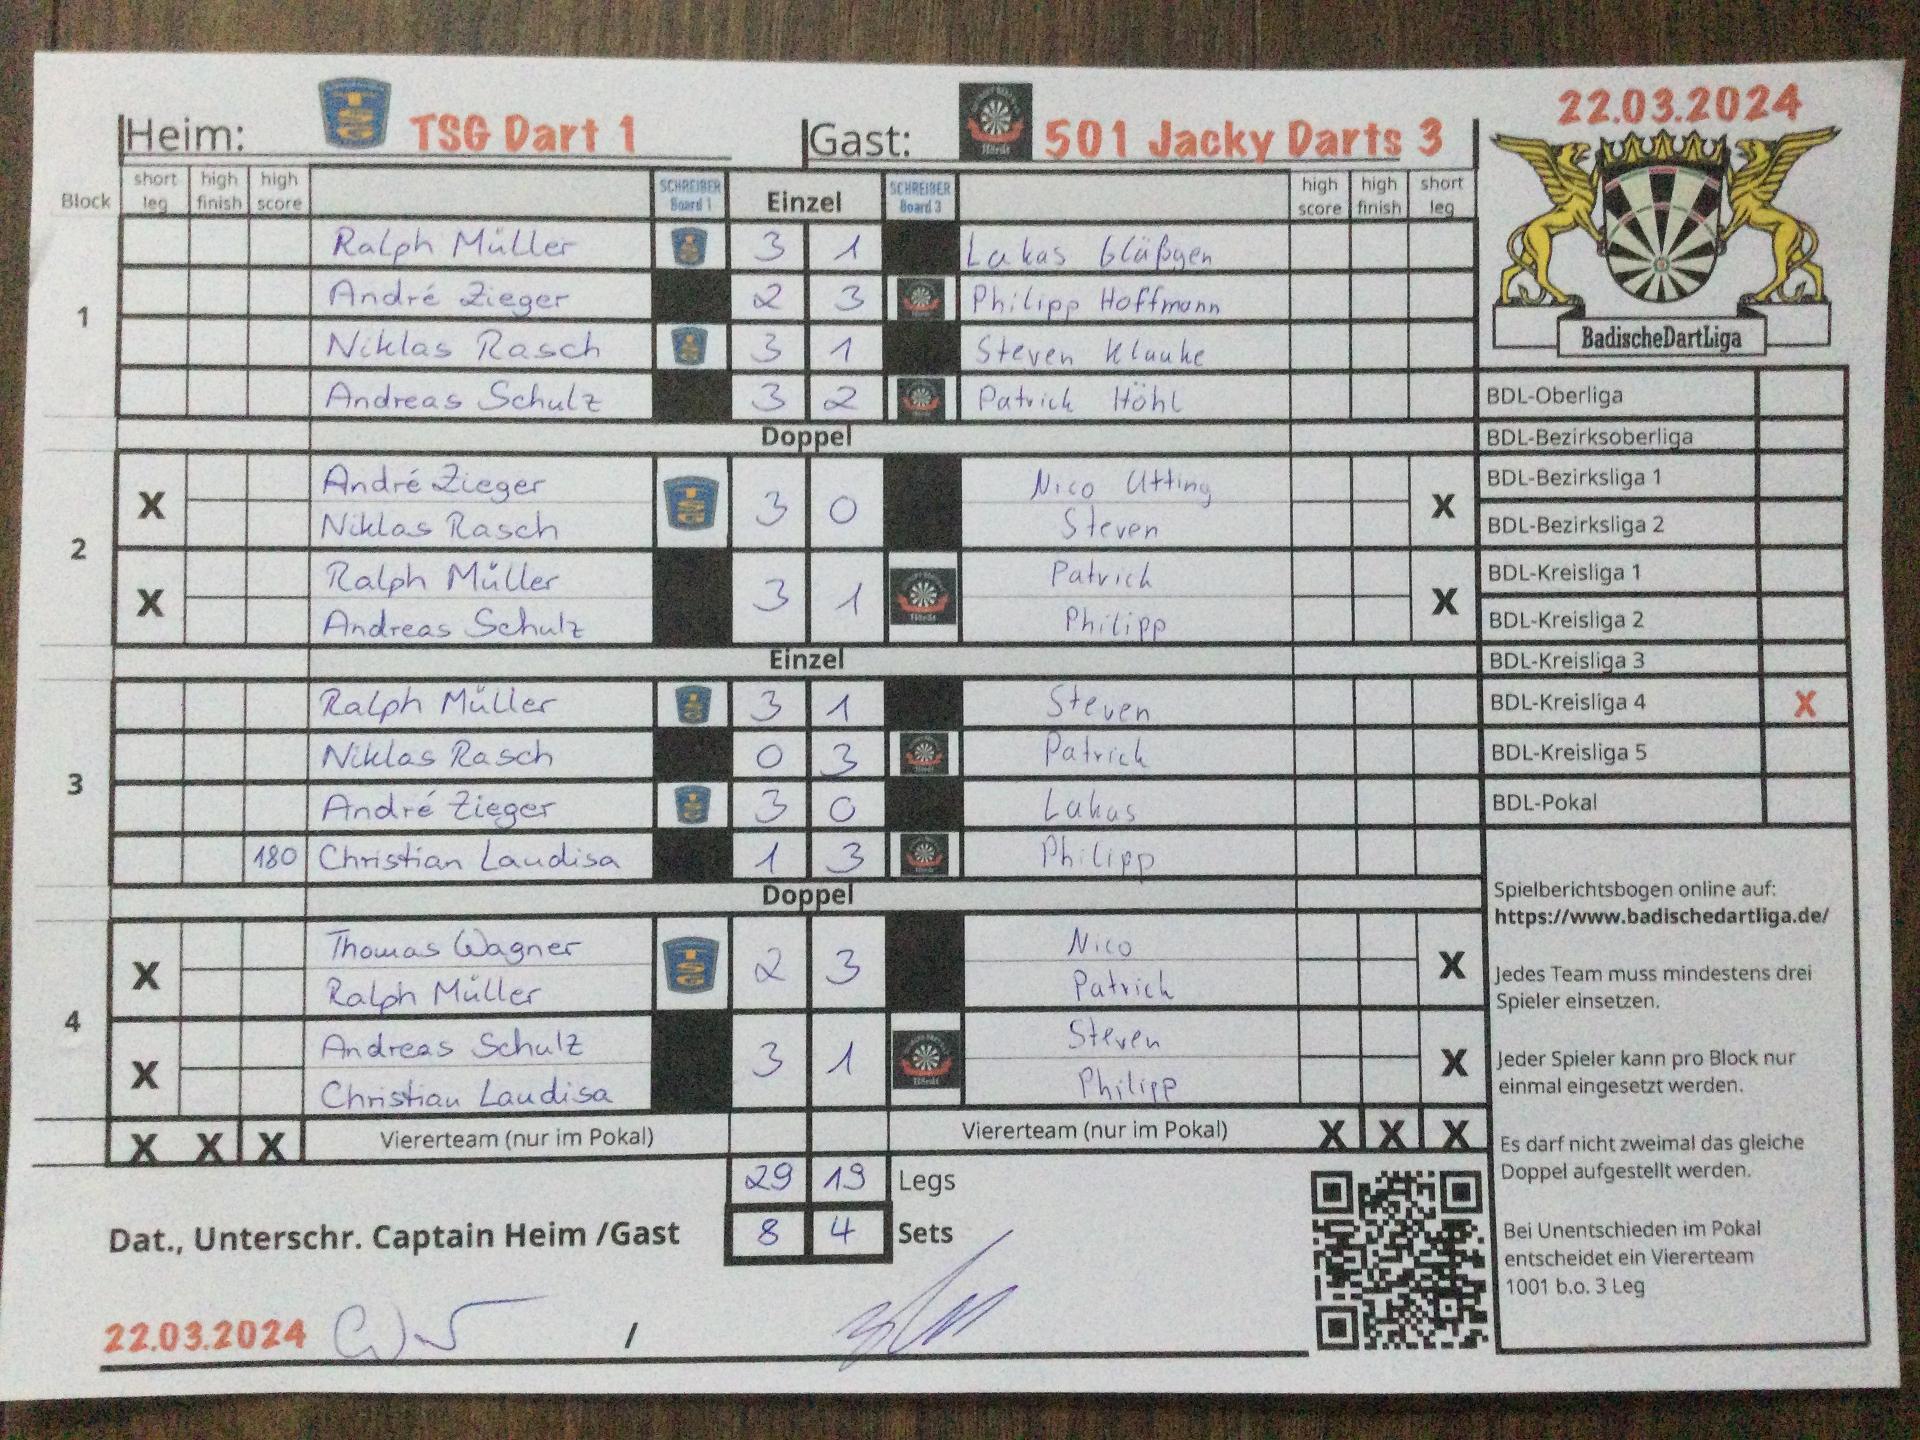 22.03.2024
Heim: TSG Dart 1 Gast: 501 Jacky Darts 3
Block short leg high finish high score SCHREIBER Board 1 Einzel SCHREIBER Board 3 high score high finish short leg
1
Ralph Müller 3 1 Lukas Gläßgen
André Zieger 2 3 Philipp Hoffmann
Niklas Rasch 3 1 Steven Klauke
Andreas Schulz 3 2 Patrick Höhl
Doppel
2
X André Zieger 3 0 Nico Utting X
Niklas Rasch Steven
X Ralph Müller 3 1 Patrick X
Andreas Schulz Philipp
Einzel
3
Ralph Müller 3 1 Steven
Niklas Rasch 0 3 Patrick
André Zieger 3 0 Lukas
180 Christian Laudisa 1 3 Philipp
Doppel
4
X Thomas Wagner 2 3 Nico X
Ralph Müller Patrick
X Andreas Schulz 3 1 Steven X
Christian Laudisa Philipp
X X X Viererteam (nur im Pokal) Viererteam (nur im Pokal) X X X
29 19 Legs
Dat., Unterschr. Captain Heim /Gast 8 4 Sets
22.03.2024 /
BadischeDartLiga
BDL-Oberliga
BDL-Bezirksoberliga
BDL-Bezirksliga 1
BDL-Bezirksliga 2
BDL-Kreisliga 1
BDL-Kreisliga 2
BDL-Kreisliga 3
BDL-Kreisliga 4 X
BDL-Kreisliga 5
BDL-Pokal
Spielberichtsbogen online auf:
https://www.badischedartliga.de/
Jedes Team muss mindestens drei
Spieler einsetzen.
Jeder Spieler kann pro Block nur
einmal eingesetzt werden.
Es darf nicht zweimal das gleiche
Doppel aufgestellt werden.
Bei Unentschieden im Pokal
entscheidet ein Viererteam
1001 b.o. 3 Leg